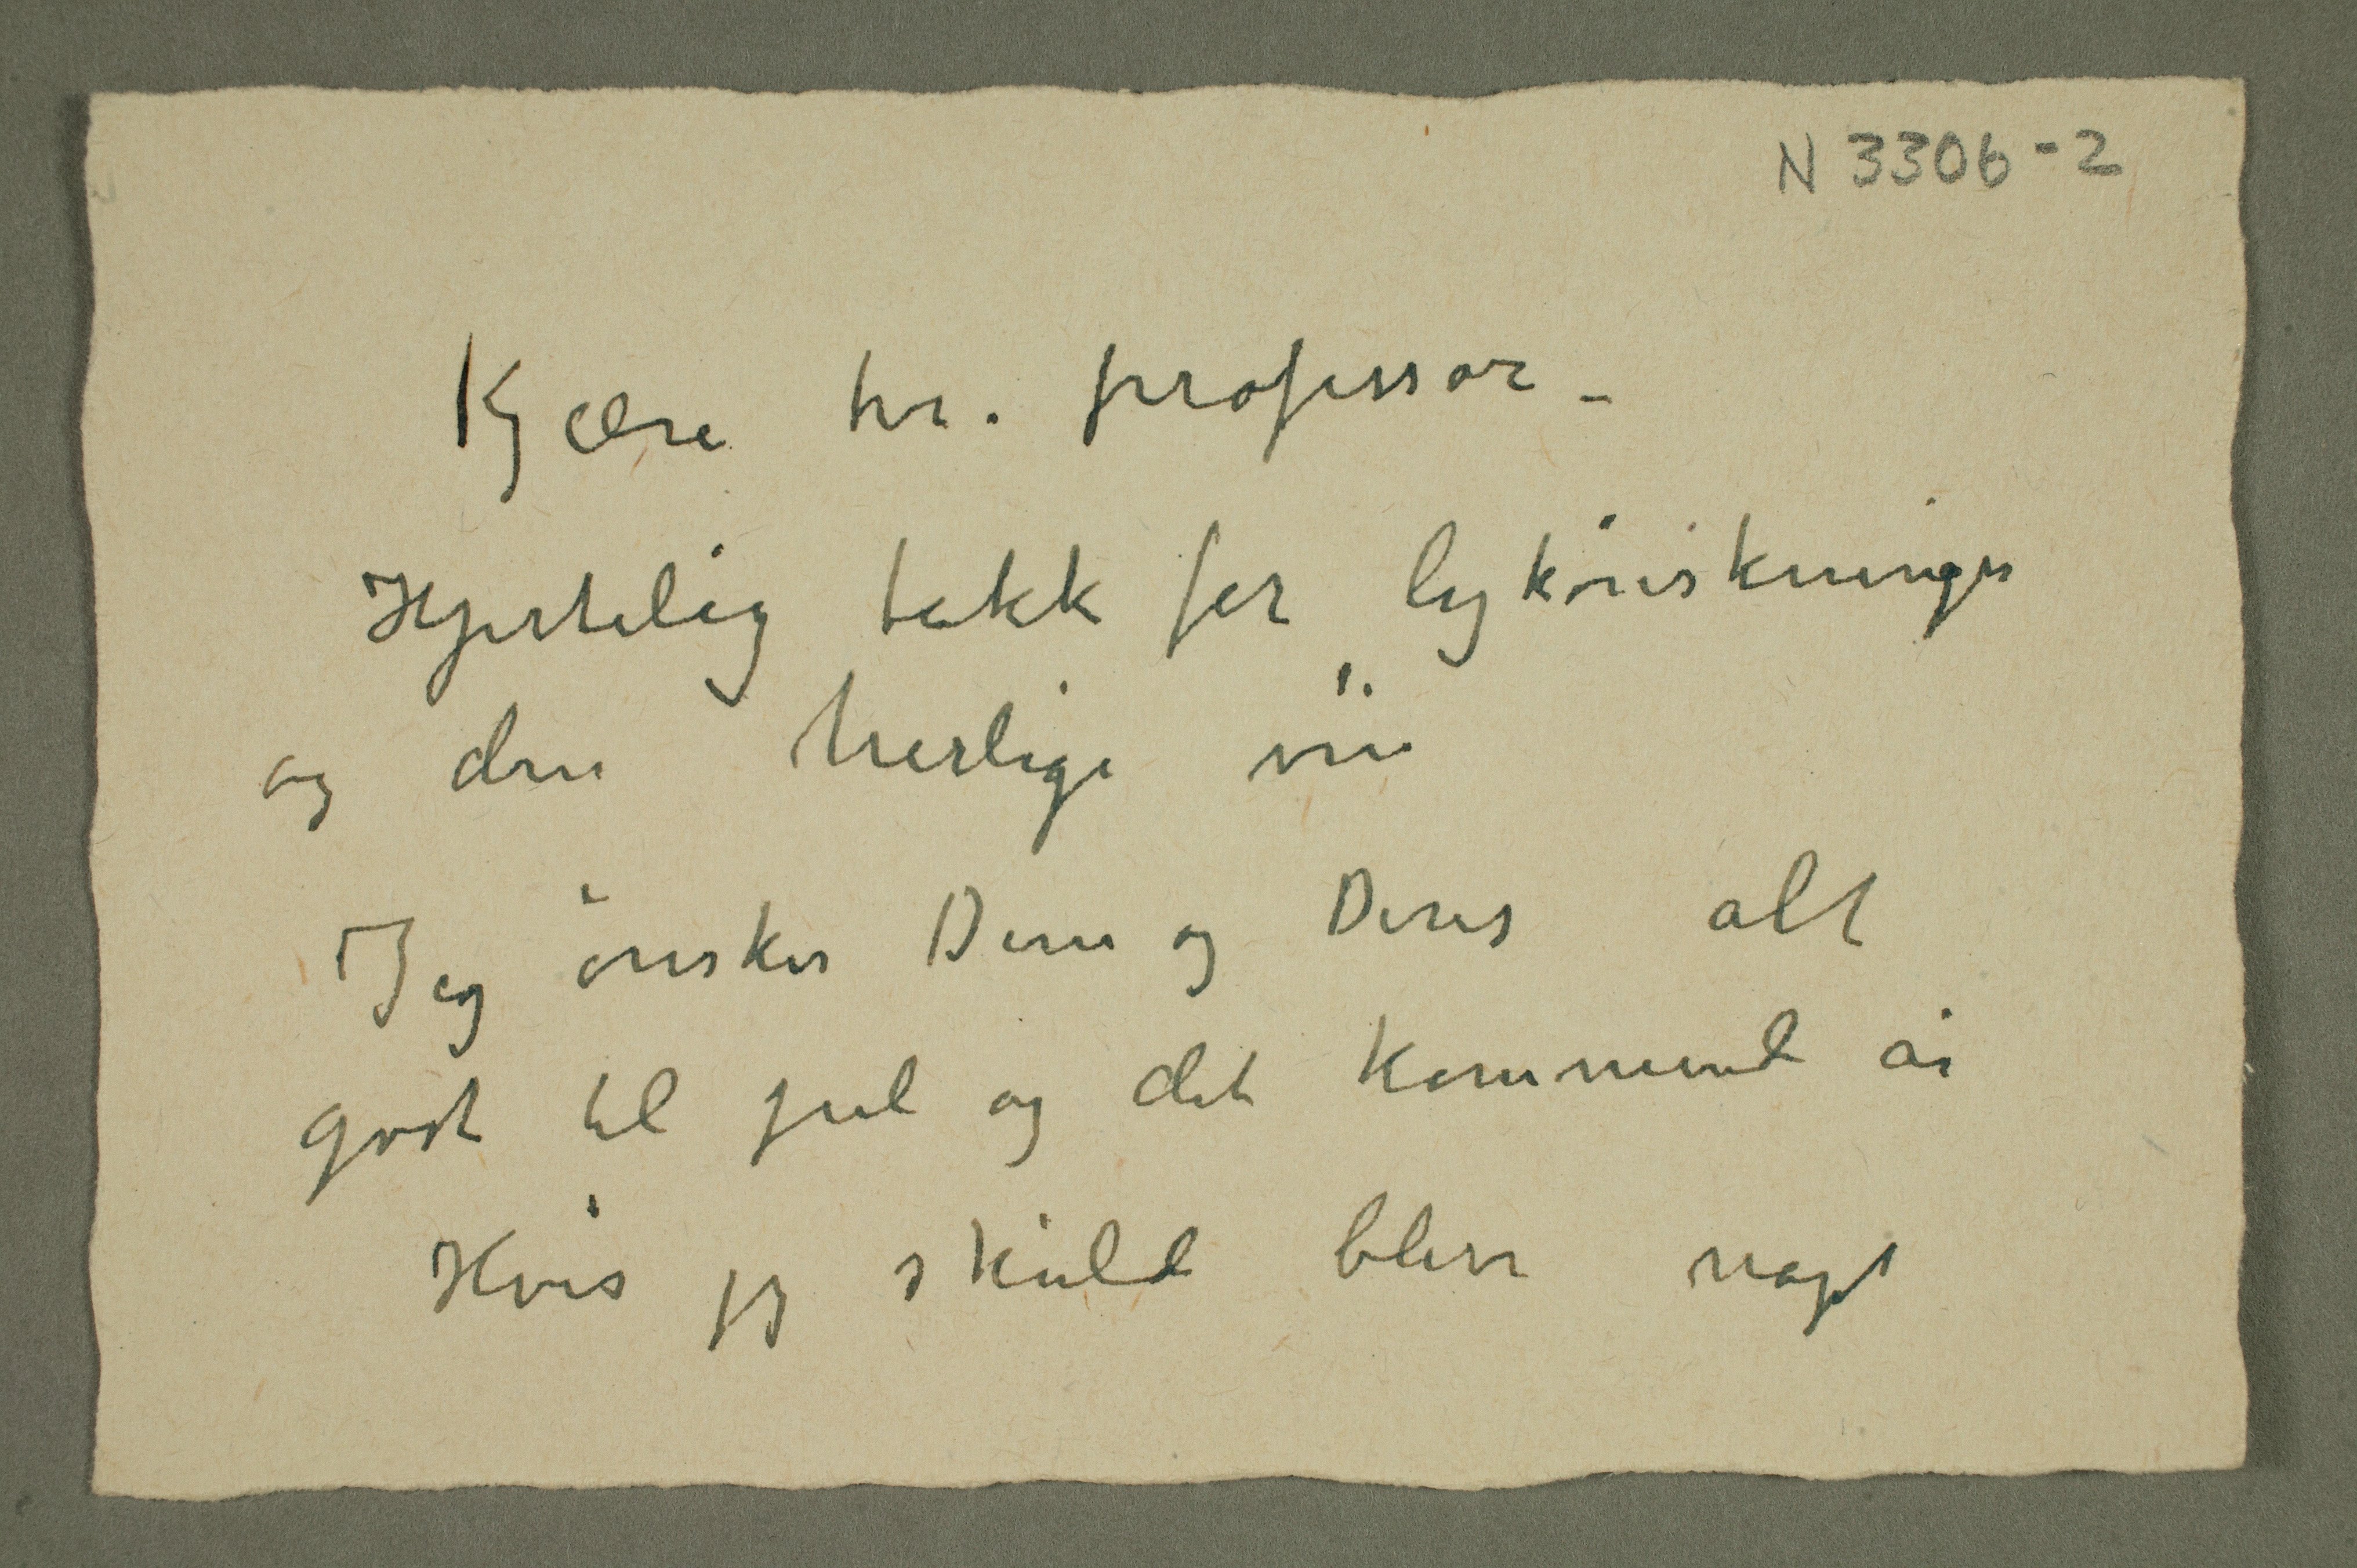 N 3306-2
Kjære hr. professor –
Hjertelig takk for lykönskninger
og den herlige vin
Jeg önsker Dem og Deres alt
godt til jul og det kommend år
Hvis jeg skuld blive noget